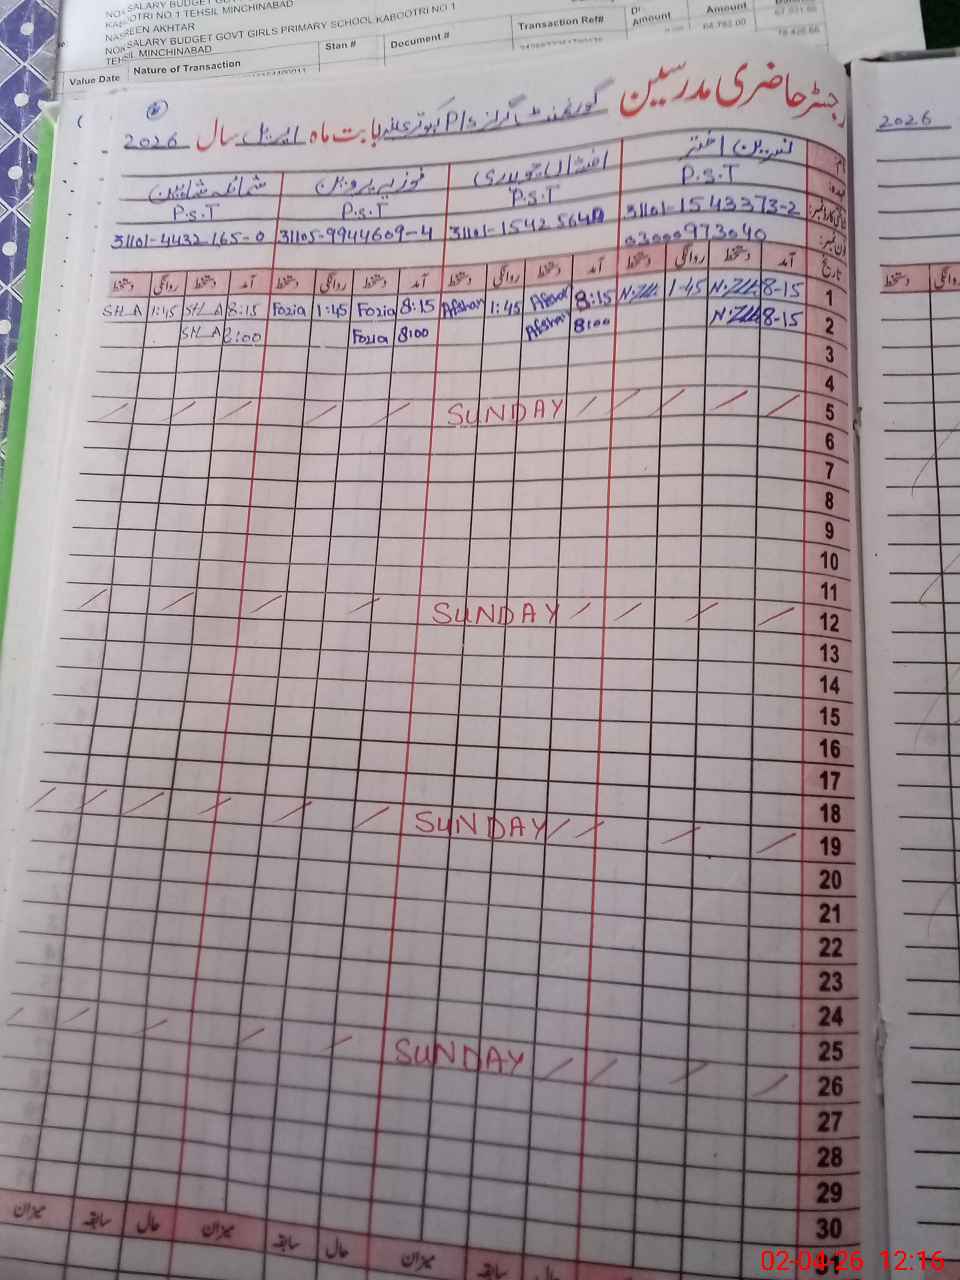 NOK SALARY BUDGET GOV
KABOOTRI NO 1 TEHSIL MINCHINABAD
NASREEN AKHTAR
NOK SALARY BUDGET GOVT GIRLS PRIMARY SCHOOL KABOOTRI NO 1
TEHSIL MINCHINABAD
Value Date Nature of Transaction Stan # Document # Transaction Ref# Amount Amount
رجسٹر حاضری مدرسین گورنمنٹ گرلز P/s بابت ماہ اپریل سال 2026
2026
نام نسرین اختر افشاں چوہدری فوزیہ پروین شمائلہ شاہین
عہدہ P.S.T P.S.T P.S.T P.S.T
31101-1543373-2 31105-9944609-4 31101-4432165-0
فون نمبر: 03000973040
تاریخ آمد دستخط روانگی دستخط آمد دستخط روانگی دستخط آمد دستخط روانگی دستخط آمد دستخط روانگی دستخط
1 8-15 1-45 8:15 Afshan 1:45 Afshan 8:15 Fozia 1:45 Fozia 8:15 SH_A 1:45 SH_A
2 8-15 8:00 Afshan 8:00 Fozia 8:00 SH_A
3
4
5 SUNDAY
6
7
8
9
10
11
12 SUNDAY
13
14
15
16
17
18
19 SUNDAY
20
21
22
23
24
25
26 SUNDAY
27
28
29
30
31
حال سابقہ میزان حال سابقہ میزان حال سابقہ میزان
دستخط
02-04-26 12:16